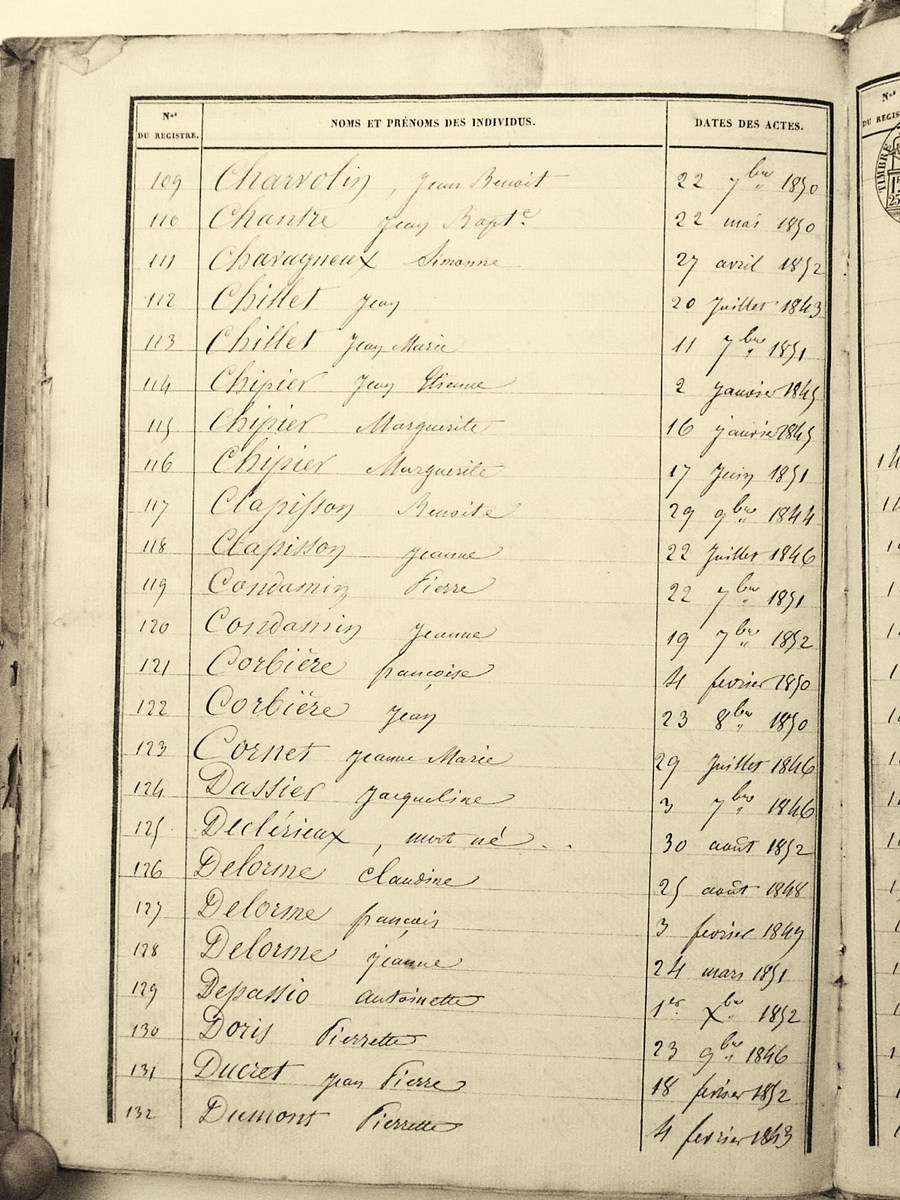 Nos DU REGISTRE. NOMS ET PRÉNOMS DES INDIVIDUS. DATES DES ACTES.
109 Charvolin, Jean Benoit 22 7bre 1850
110 Chantre Jean Bapte 22 mai 1850
111 Chavagneux Simonne 27 avril 1852
112 Chillet Jean 20 Juillet 1843
113 Chillet Jean Marie 11 7bre 1851
114 Chipier Jean Etienne 2 janvier 1845
115 Chipier Marguerite 16 janvier 1845
116 Chipier Marguerite 17 Juin 1851
117 Clapisson Benoite 29 9bre 1844
118 Clapisson Jeanne 22 Juillet 1846
119 Condamin Pierre 22 7bre 1851
120 Condamin Jeanne 19 7bre 1852
121 Corbière françoise 4 fevrier 1850
122 Corbière Jean 23 8bre 1850
123 Cornet Jeanne Marie 29 Juillet 1846
124 Dassier Jacqueline 3 7bre 1846
125. Declérieux, mort né .. 30 août 1852
126 Delorme Claudine 25 août 1848
127 Delorme françois 3 fevrier 1849
128 Delorme jeanne 24 mars 1851
129 Depassio antoinette 1er Xbre 1852
130 Doris Pierrette 23 9bre 1846
131 Ducret jean Pierre 18 fevrier 1852
132 Dumont Pierrette 4 fevrier 1843
Nos
TIMBRE